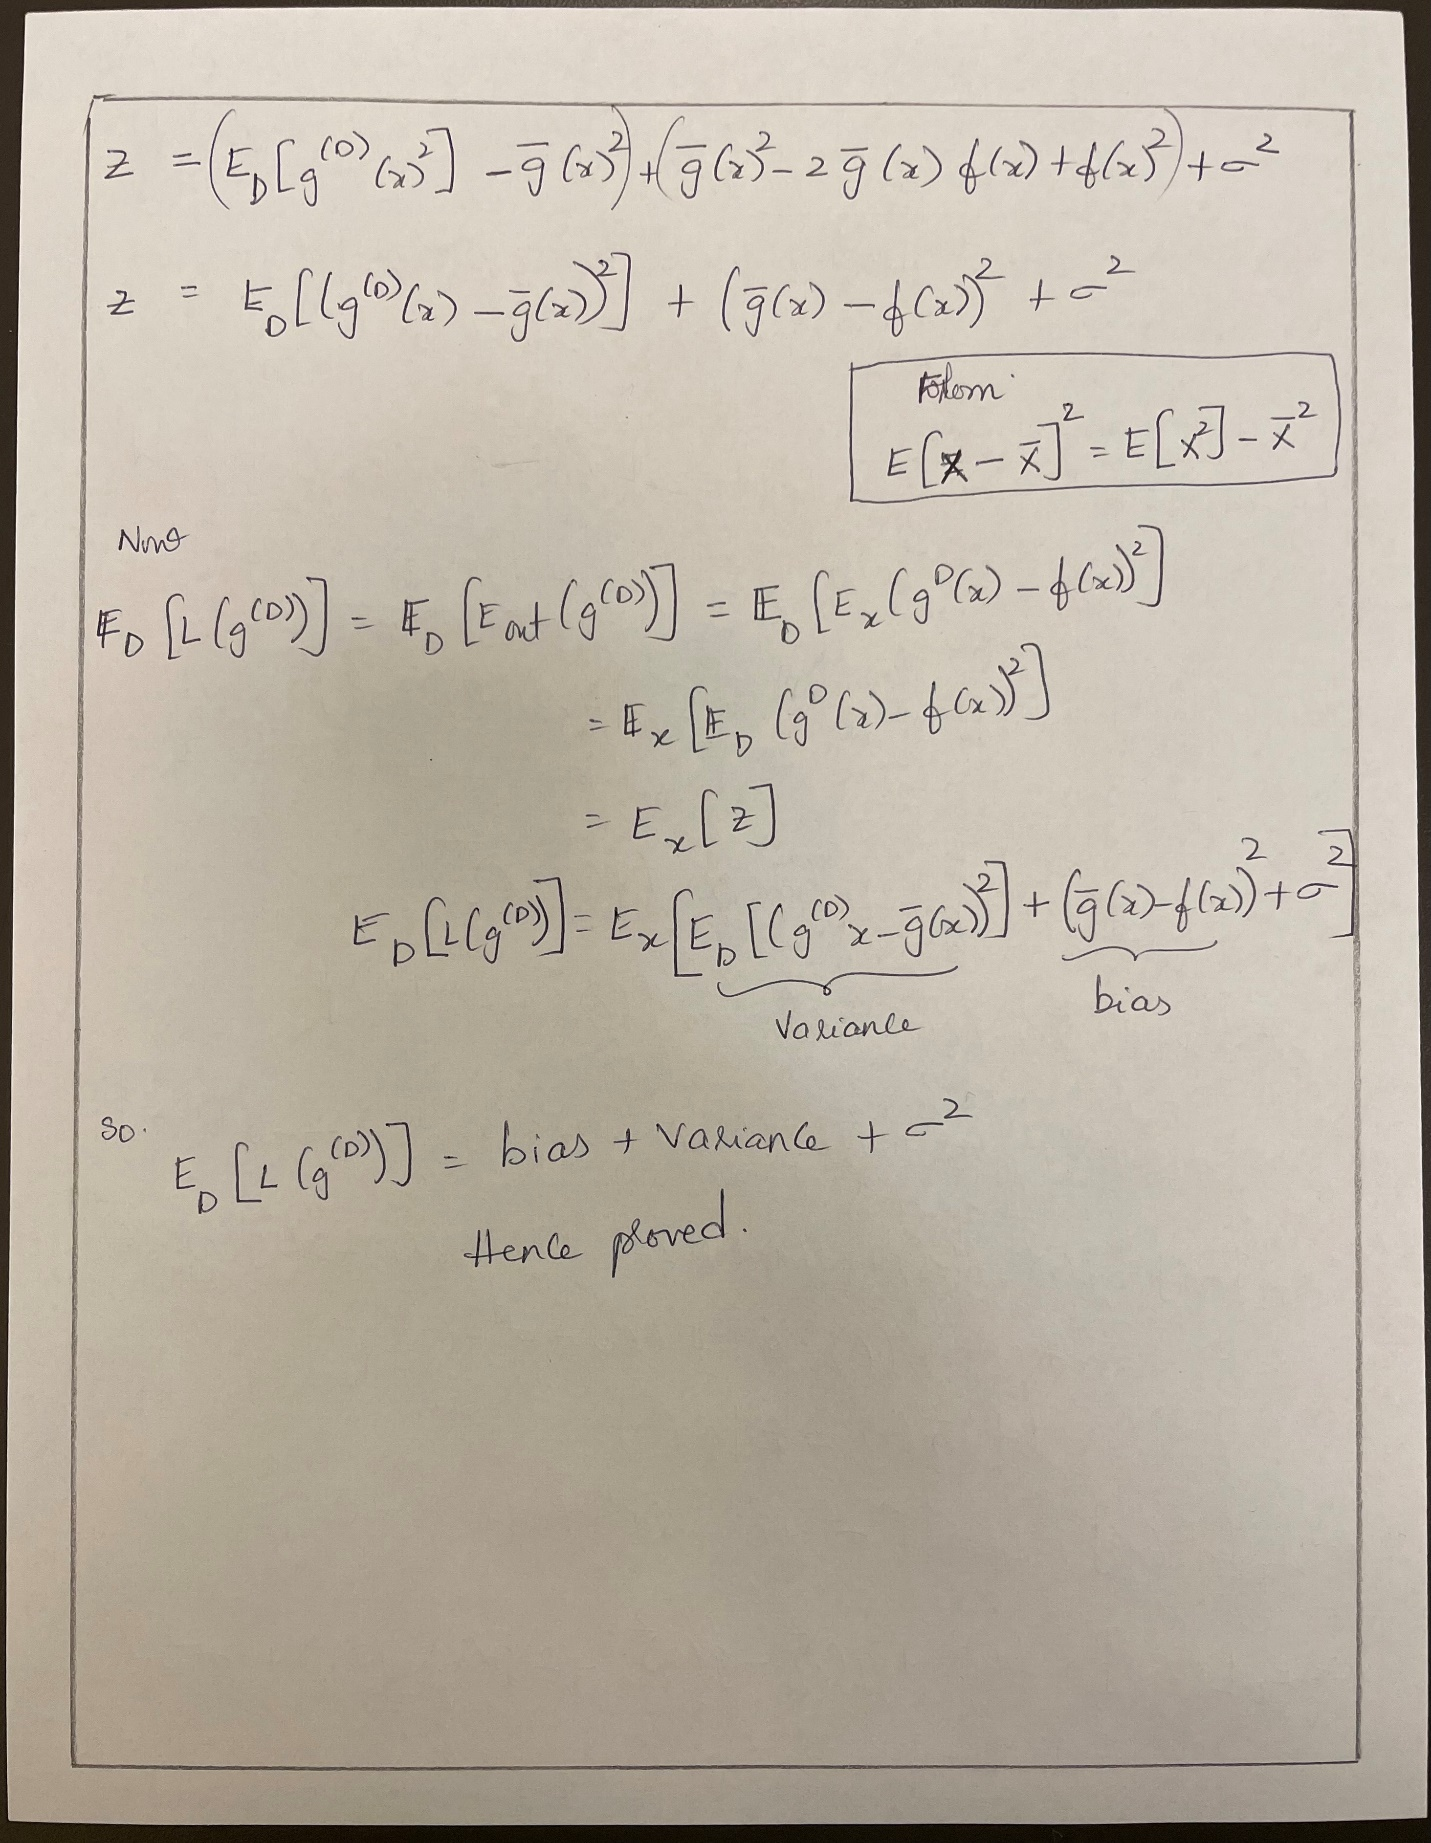 z = (E_D[g^(D)(x)^2] - ḡ(x)^2) + (ḡ(x)^2 - 2 ḡ(x) f(x) + f(x)^2) + σ^2
z = E_D[(g^(D)(x) - ḡ(x))^2] + (ḡ(x) - f(x))^2 + σ^2
E[x - x̄]^2 = E[x^2] - x̄^2
E_D [L(g^(D))] = E_D [E_out(g^(D))] = E_D [E_x(g^D(x) - f(x))^2]
= E_x [E_D (g^D(x) - f(x))^2]
= E_x [z]
E_D [L(g^(D))] = E_x [E_D [(g^(D) x - ḡ(x))^2] + (ḡ(x) - f(x))^2 + σ^2]
Variance bias
so.
E_D [L(g^(D))] = bias + Variance + σ^2
Hence proved.